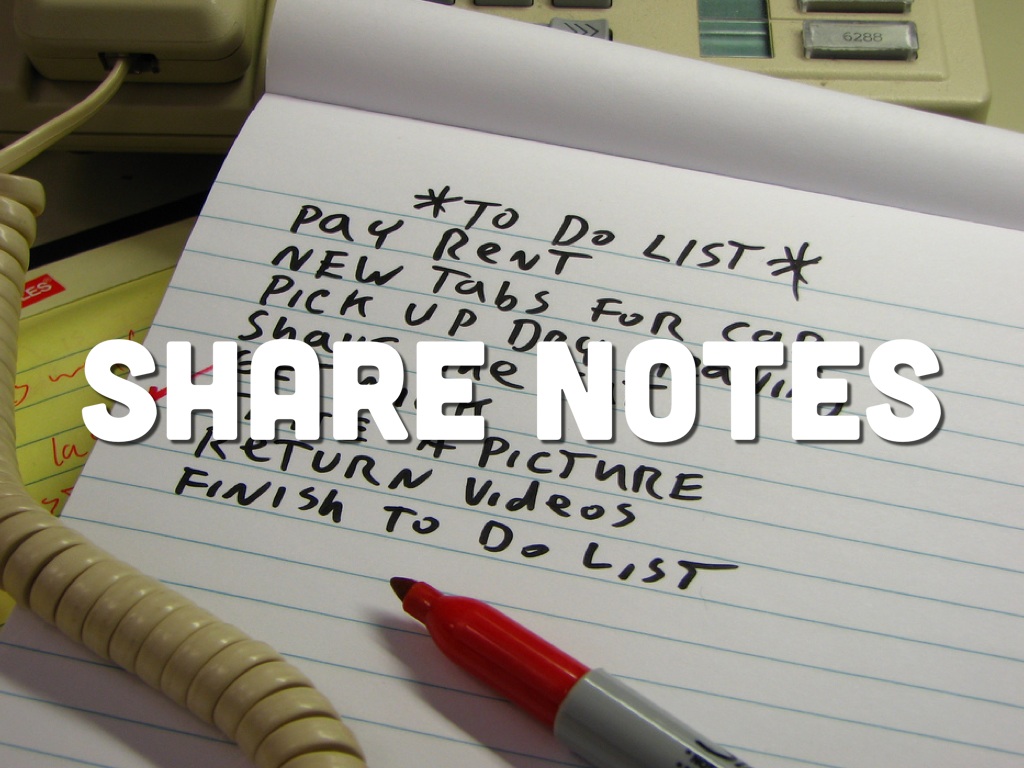 6288
*TO DO LIST*
PAY RENT
NEW TABS FOR CAR
PICK UP
SHARE NOTES
A PICTURE
RETURN VIDEOS
FINISH TO DO LIST